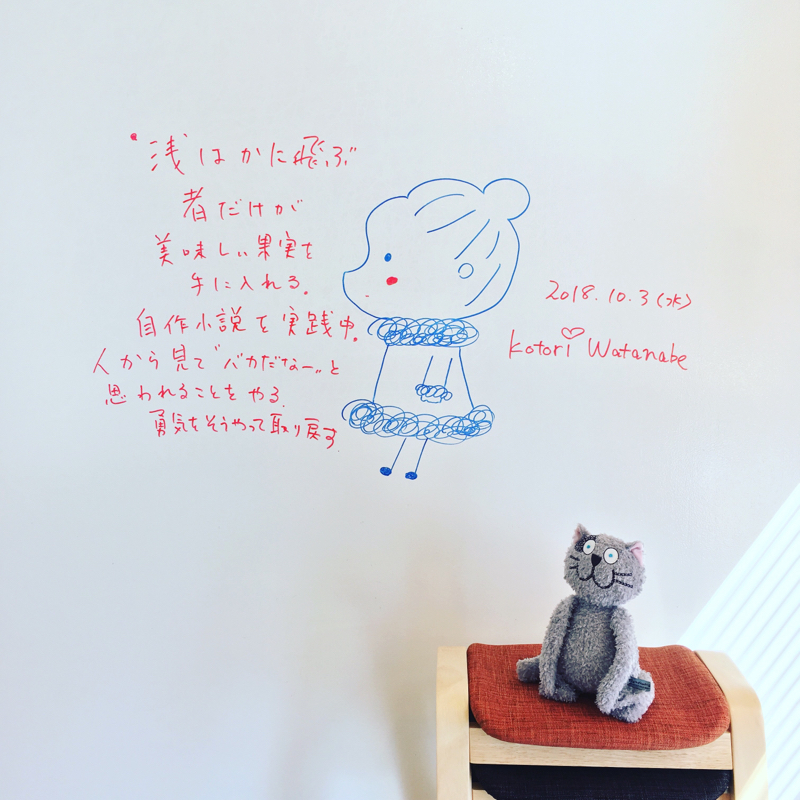 "浅はかに飛ぶ
者だけが
美味しい果実を
手に入れる。
自作小説を実践中。
人から見て"バカだなー"と
思われることをやる.
勇気をそうやって取り戻す
2018.10.3(水)
Kotori Watanabe